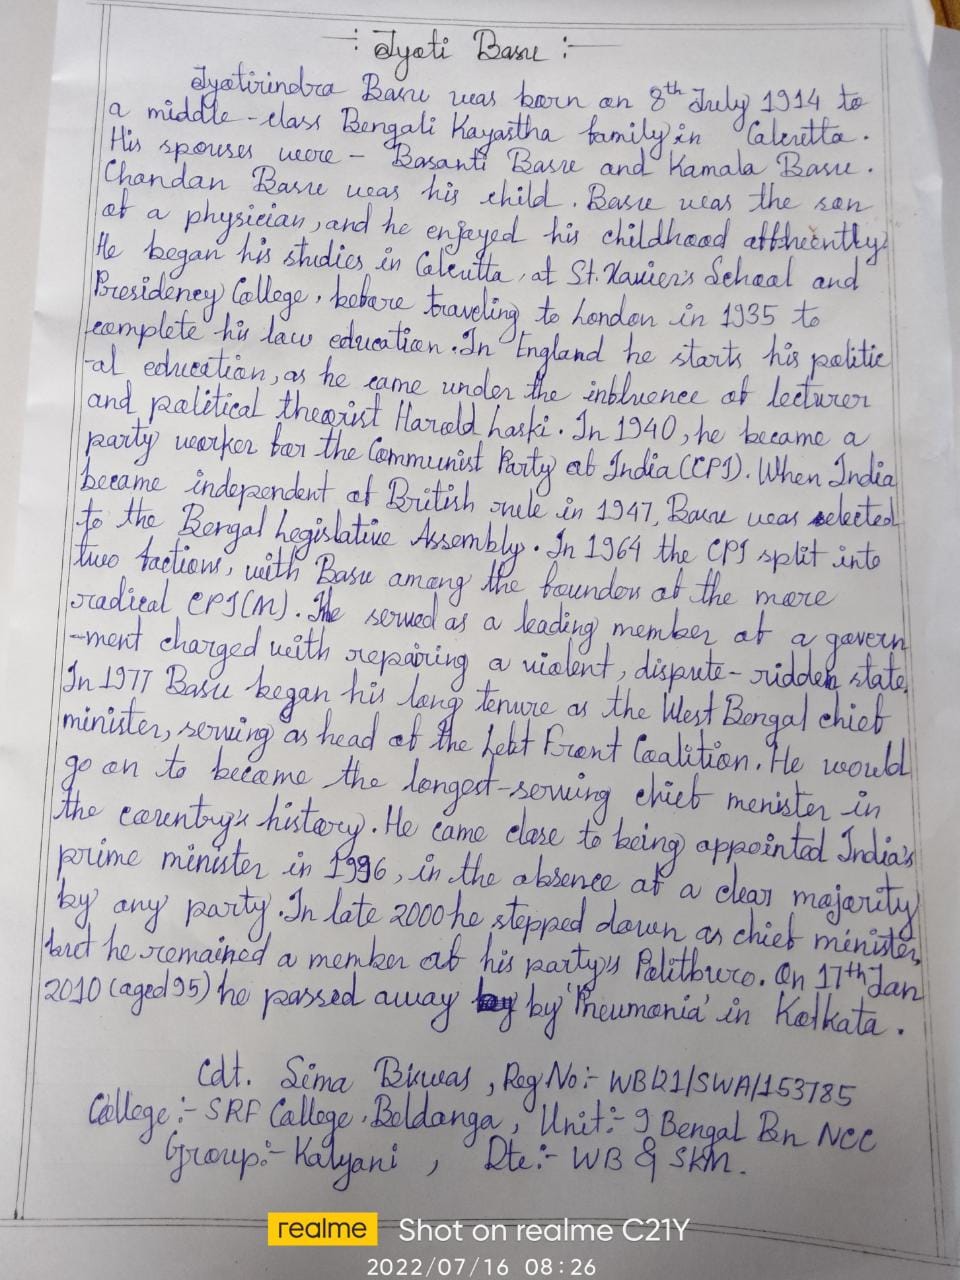 -: Jyoti Basu :-
Jyotirindra Basu was born on 8th July 1914 to
a middle-class Bengali Kayastha family in Calcutta.
His spouses were - Basanti Basu and Kamala Basu.
Chandan Basu was his child. Basu was the son
of a physician, and he enjoyed his childhood affluently.
He began his studies in Calcutta, at St. Xavier's School and
Presidency College, before traveling to London in 1935 to
complete his law education. In England he starts his politic
-al education, as he came under the influence of lecturer
and political theorist Harold Laski. In 1940, he became a
party worker for the Communist Party of India (CPI). When India
became independent of British rule in 1947, Basu was elected
to the Bengal Legislative Assembly. In 1964 the CPI split into
two factions, with Basu among the founders of the more
radical CPI(M). He served as a leading member of a govern
-ment charged with repairing a violent, dispute-ridden state.
In 1977 Basu began his long tenure as the West Bengal chief
minister, serving as head of the Left Front Coalition. He would
go on to become the longest-serving chief menister in
the country's history. He came close to being appointed India's
prime minister in 1996, in the absence of a clear majority
by any party. In late 2000 he stepped down as chief minister,
but he remained a member of his party's Politburo. On 17th Jan
2010 (aged 95) he passed away by 'Pneumonia' in Kolkata.
Cdt. Sima Biswas, Reg No:- WB/21/SWA/153785
College:- SRF College, Beldanga, Unit:- 9 Bengal Bn NCC
Group:- Kalyani, Dte:- WB & SKM.
realme Shot on realme C21Y
2022/07/16 08:26